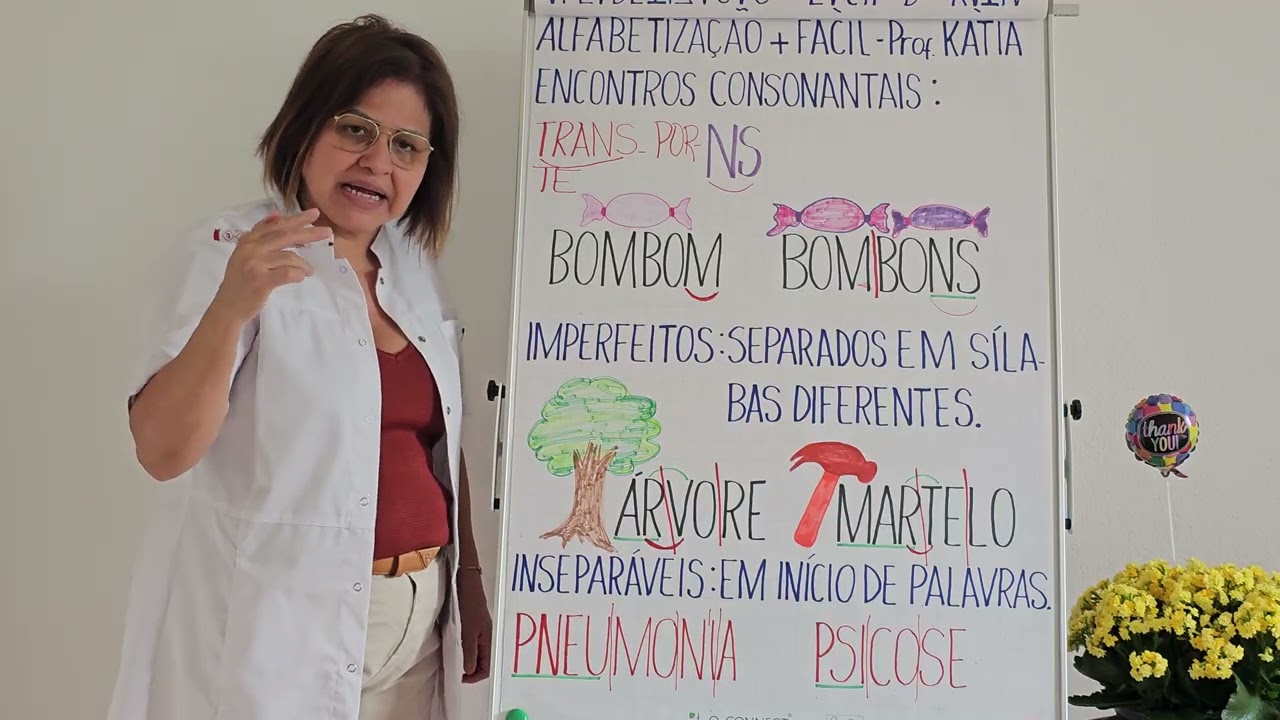 ALFABETIZAÇÃO + FÁCIL - Prof. KÁTIA
ENCONTROS CONSONANTAIS:
TRANS- POR- NS
TE
BOMBOM BOM|BONS
IMPERFEITOS: SEPARADOS EM SÍLA-
BAS DIFERENTES.
ÁR|VO|RE MAR|TE|LO
INSEPARÁVEIS: EM INÍCIO DE PALAVRAS.
PNEU|MO|NI|A PSI|CO|SE
thank
YOU!